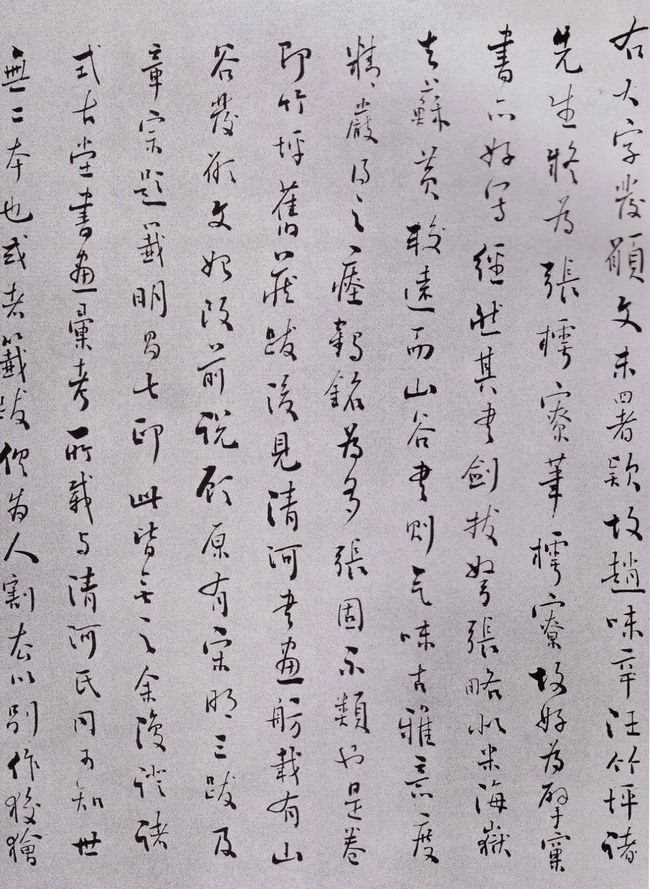 右大字發願文末署款故趙味辛汪竹坪諸
先生疑為張樗寮筆樗寮故好為擘窠
書亦好寫經然其書劍拔弩張略似米海嶽
去蘇黃較遠而山谷書則氣味古雅意度
精嚴得之瘞鶴銘為多張固不類也是卷
即竹坪舊藏跋後見清河書畫舫載有山
谷發願文始改前說顧原有宋明三跋及
章宗題籤明昌七印此皆無之余復證諸
式古堂書畫彙考所載與清河氏同可知世
無二本也或者籤跋俱為人割去以別作狡獪